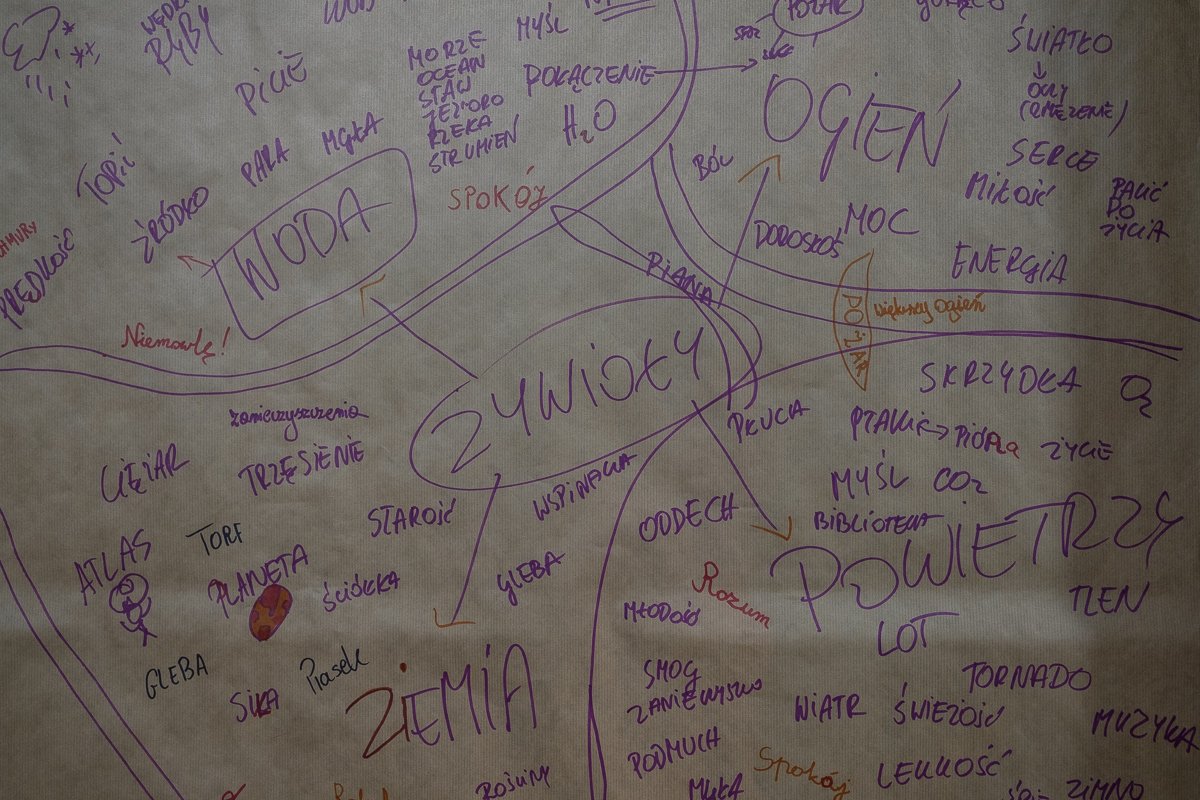 RYBY
PICIE
TOPIĆ
ŹRÓDŁO
PARA
MGŁA
WODA
PRĘDKOŚĆ
Niemowlę!
MORZE
OCEAN
STAW
JEZIORO
RZEKA
STRUMIEŃ
MYŚL
POŁĄCZENIE
H2O
SPOKÓJ
POŻAR
OGIEŃ
ŚWIATŁO
SERCE
MIŁOŚĆ
PALIĆ
DO
ŻYCIA
BÓL
MOC
DOROSŁOŚ
ENERGIA
PIANA
POŻAR
większy ogień
ŻYWIOŁY
zanieczyszczenia
CIĘŻAR
TRZĘSIENIE
STAROŚĆ
WSPINAWA
ATLAS
TORF
PLANETA
ŚCIÓŁKA
GLEBA
GLEBA
SIŁA
Piasek
ZIEMIA
ROŚLINY
SKRZYDŁA
O2
PŁUCA
PTAKI
PIÓRA
ŻYCIE
MYŚL
CO2
BIBLIOTEKA
ODDECH
POWIETRZY
Rozum
MŁODOŚĆ
TLEN
LOT
SMOG
TORNADO
WIATR
ŚWIEŻOŚĆ
MUZYKA
PODMUCH
Spokój
LEKKOŚĆ
MGŁA
ZIMNO